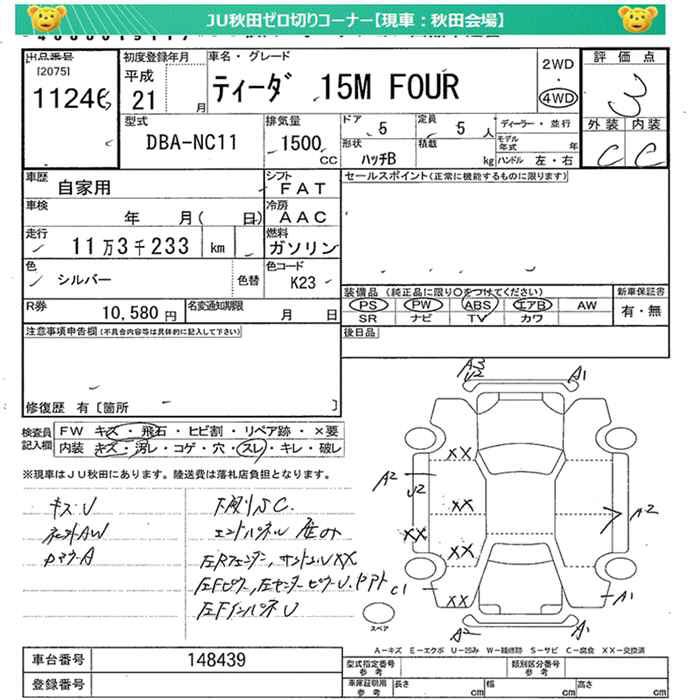 JU秋田ゼロ切りコーナー【現車：秋田会場】
出品番号
[2075]
11246
初度登録年月
平成
21 月
車名・グレード
ティーダ 15M FOUR
2WD
・
4WD
評価点
3
外装 内装
C C
型式
DBA-NC11
排気量
1500
CC
ドア 5
定員 5 人
形状 ハッチB
積載 kg
ディーラー・並行
モデル年式 年
ハンドル 左・右
車歴 自家用
シフト FAT
車検 年 月( 日)
冷房 AAC
走行 11万3千233 km
燃料 ガソリン
色 シルバー
色替
色コード K23
R券 10,580 円
名変通知期限 月 日
セールスポイント(正常に機能するものに限ります)
装備品(純正品に限り○をつけてください)
PS PW ABS エアB AW
SR ナビ TV カワ
新車保証書
有・無
後日品
注意事項申告欄(不具合内容等は具体的に記入して下さい)
修復歴 有〔箇所 〕
検査員記入欄
FW キズ・飛石・ヒビ割・リペア跡・×要
内装 キズ・汚レ・コゲ・穴・スレ・キレ・破レ
※現車はJU秋田にあります。陸送費は落札店負担となります。
キズU
下廻りSC
A3
U2
A1
A2
U2
XX
XX
XX
XX
XX
A2
C1
A1
A2
A1
スペア
A－キズ E－エクボ U－凹み W－補修跡 S－サビ C－腐食 XX－交換済
車台番号 148439
登録番号
型式指定番号 参考
類別区分番号 参考
車庫証明用 参考
長さ cm
幅 cm
高さ cm